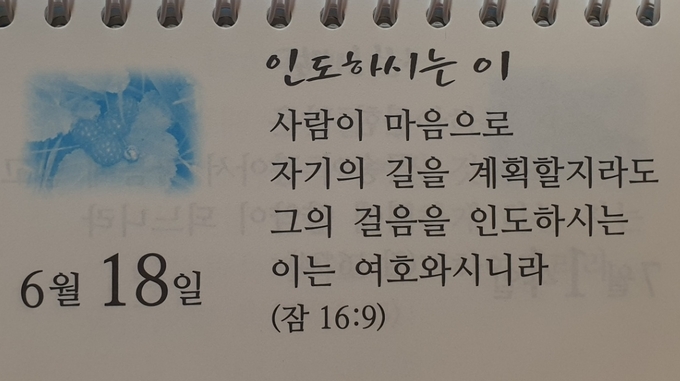 인도하시는 이
사람이 마음으로
자기의 길을 계획할지라도
그의 걸음을 인도하시는
이는 여호와시니라
(잠 16:9)
6월 18일